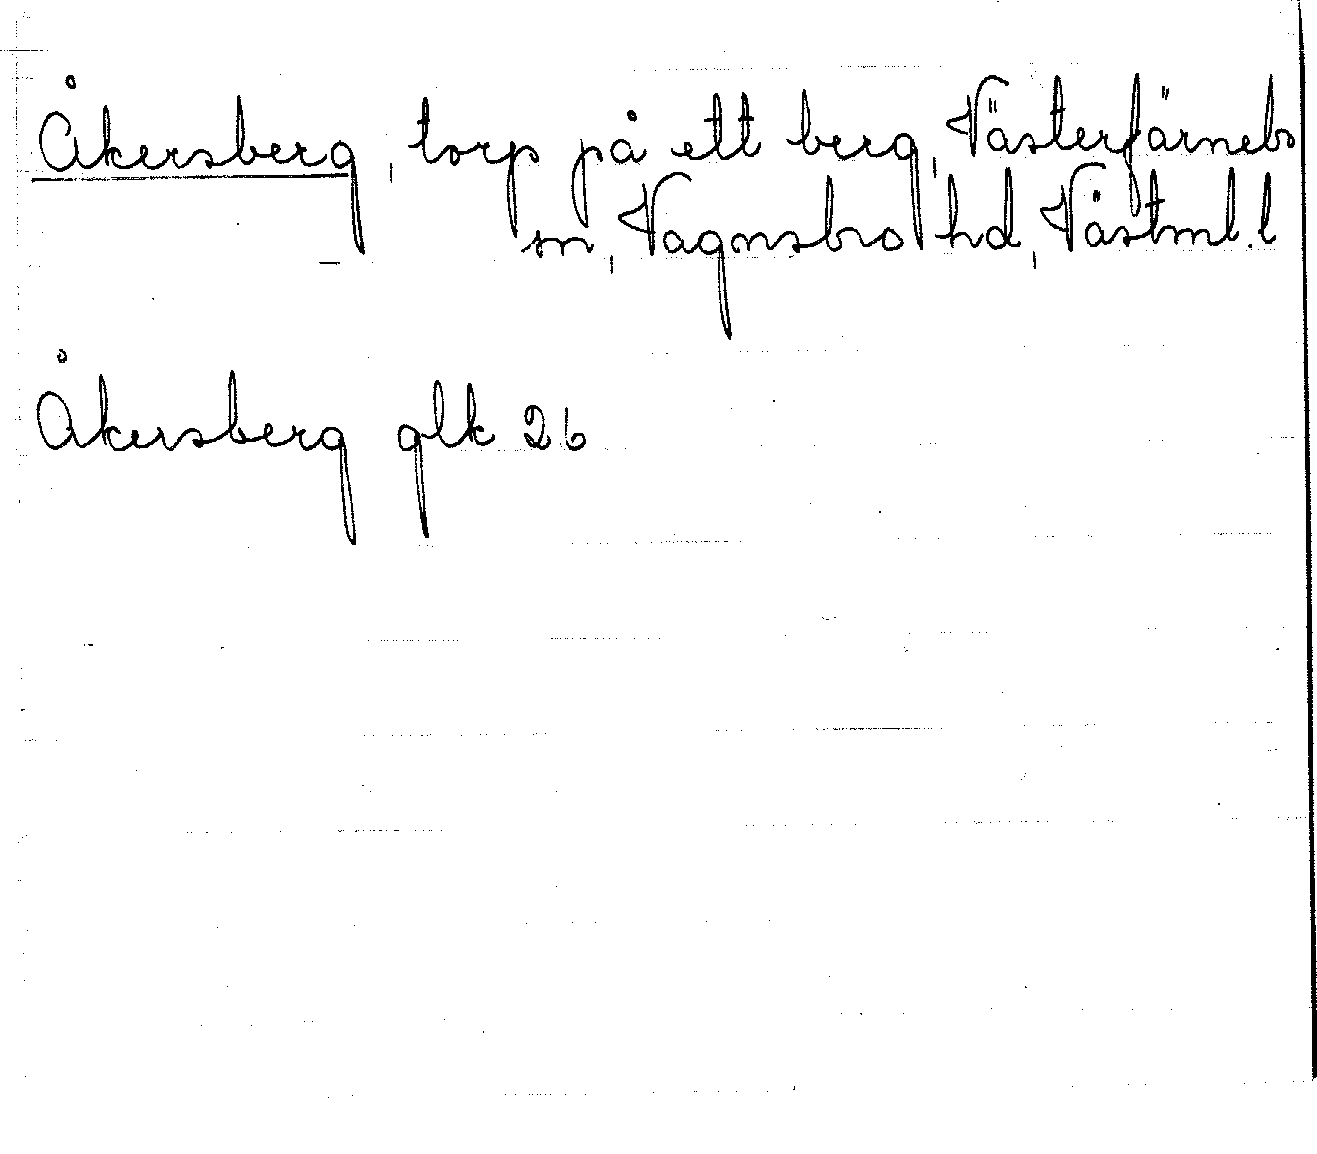 Åkersberg, torp på ett berg, Västerfärnebo
sn, Vagnsbro hd, Västml. l
Åkersberg glk 26